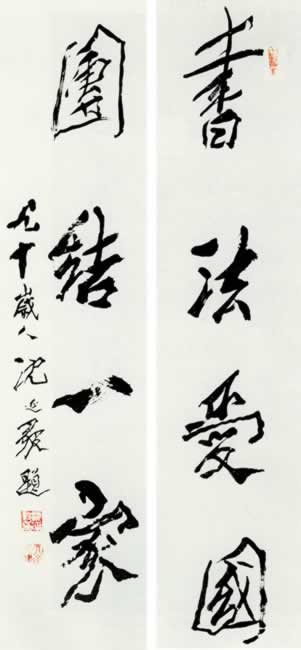 書法愛國
團結一家
九十歲人沈延毅題